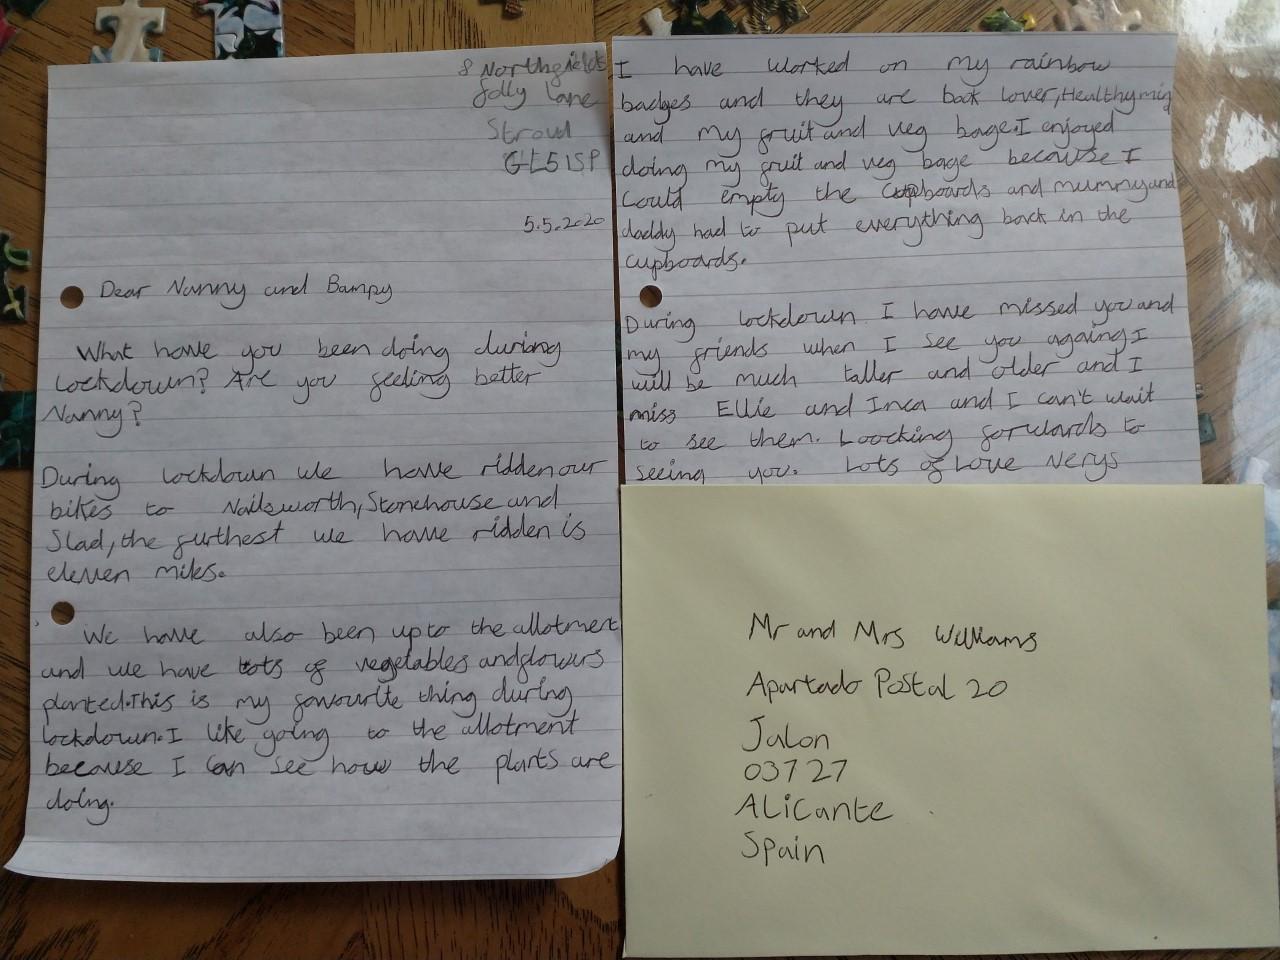 8 Northfields
Folly Lane
Stroud
GL5 1SP
5.5.2020
Dear Nanny and Bampy
What have you been doing during
lockdown? Are you feeling better
Nanny?
During lockdown we have ridden our
bikes to Nailsworth, Stonehouse and
Slad, the furthest we have ridden is
eleven miles.
We have also been up to the allotment
and we have lots of vegetables and flowers
planted. This is my favourite thing during
lockdown. I like going to the allotment
because I can see how the plants are
doing.
I have worked on my rainbow
badges and they are book lover, Healthy mind
and my fruit and veg bage. I enjoyed
doing my fruit and veg bage because I
could empty the cupboards and mummy and
daddy had to put everything back in the
cupboards.
During lockdown I have missed you and
my friends when I see you againg I
will be much taller and older and I
miss Ellie and Inca and I can't wait
to see them. Loocking forwards to
seeing you. Lots of Love Nerys
Mr and Mrs Williams
Apartado Postal 20
Jalon
03727
Alicante
Spain